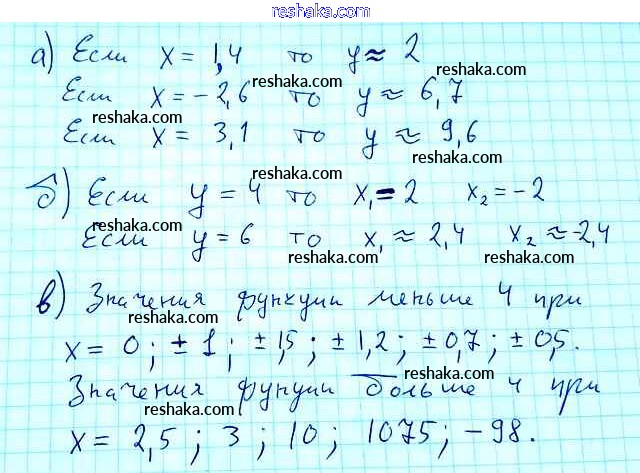 reshaka.com
а) Если x = 1,4 то y ≈ 2
reshaka.com
Если x = -2,6 то y ≈ 6,7
reshaka.com
Если x = 3,1 то y ≈ 9,6
reshaka.com
б) Если y = 4 то x₁ = 2 x₂ = -2
reshaka.com
Если y = 6 то x₁ ≈ 2,4 x₂ ≈ -2,4
reshaka.com
в) Значения функции меньше 4 при
reshaka.com
x = 0; ±1; ±1,5; ±1,2; ±0,7; ±0,5.
reshaka.com
Значения функции больше 4 при
reshaka.com
x = 2,5; 3; 10; 1075; -98.
reshaka.com